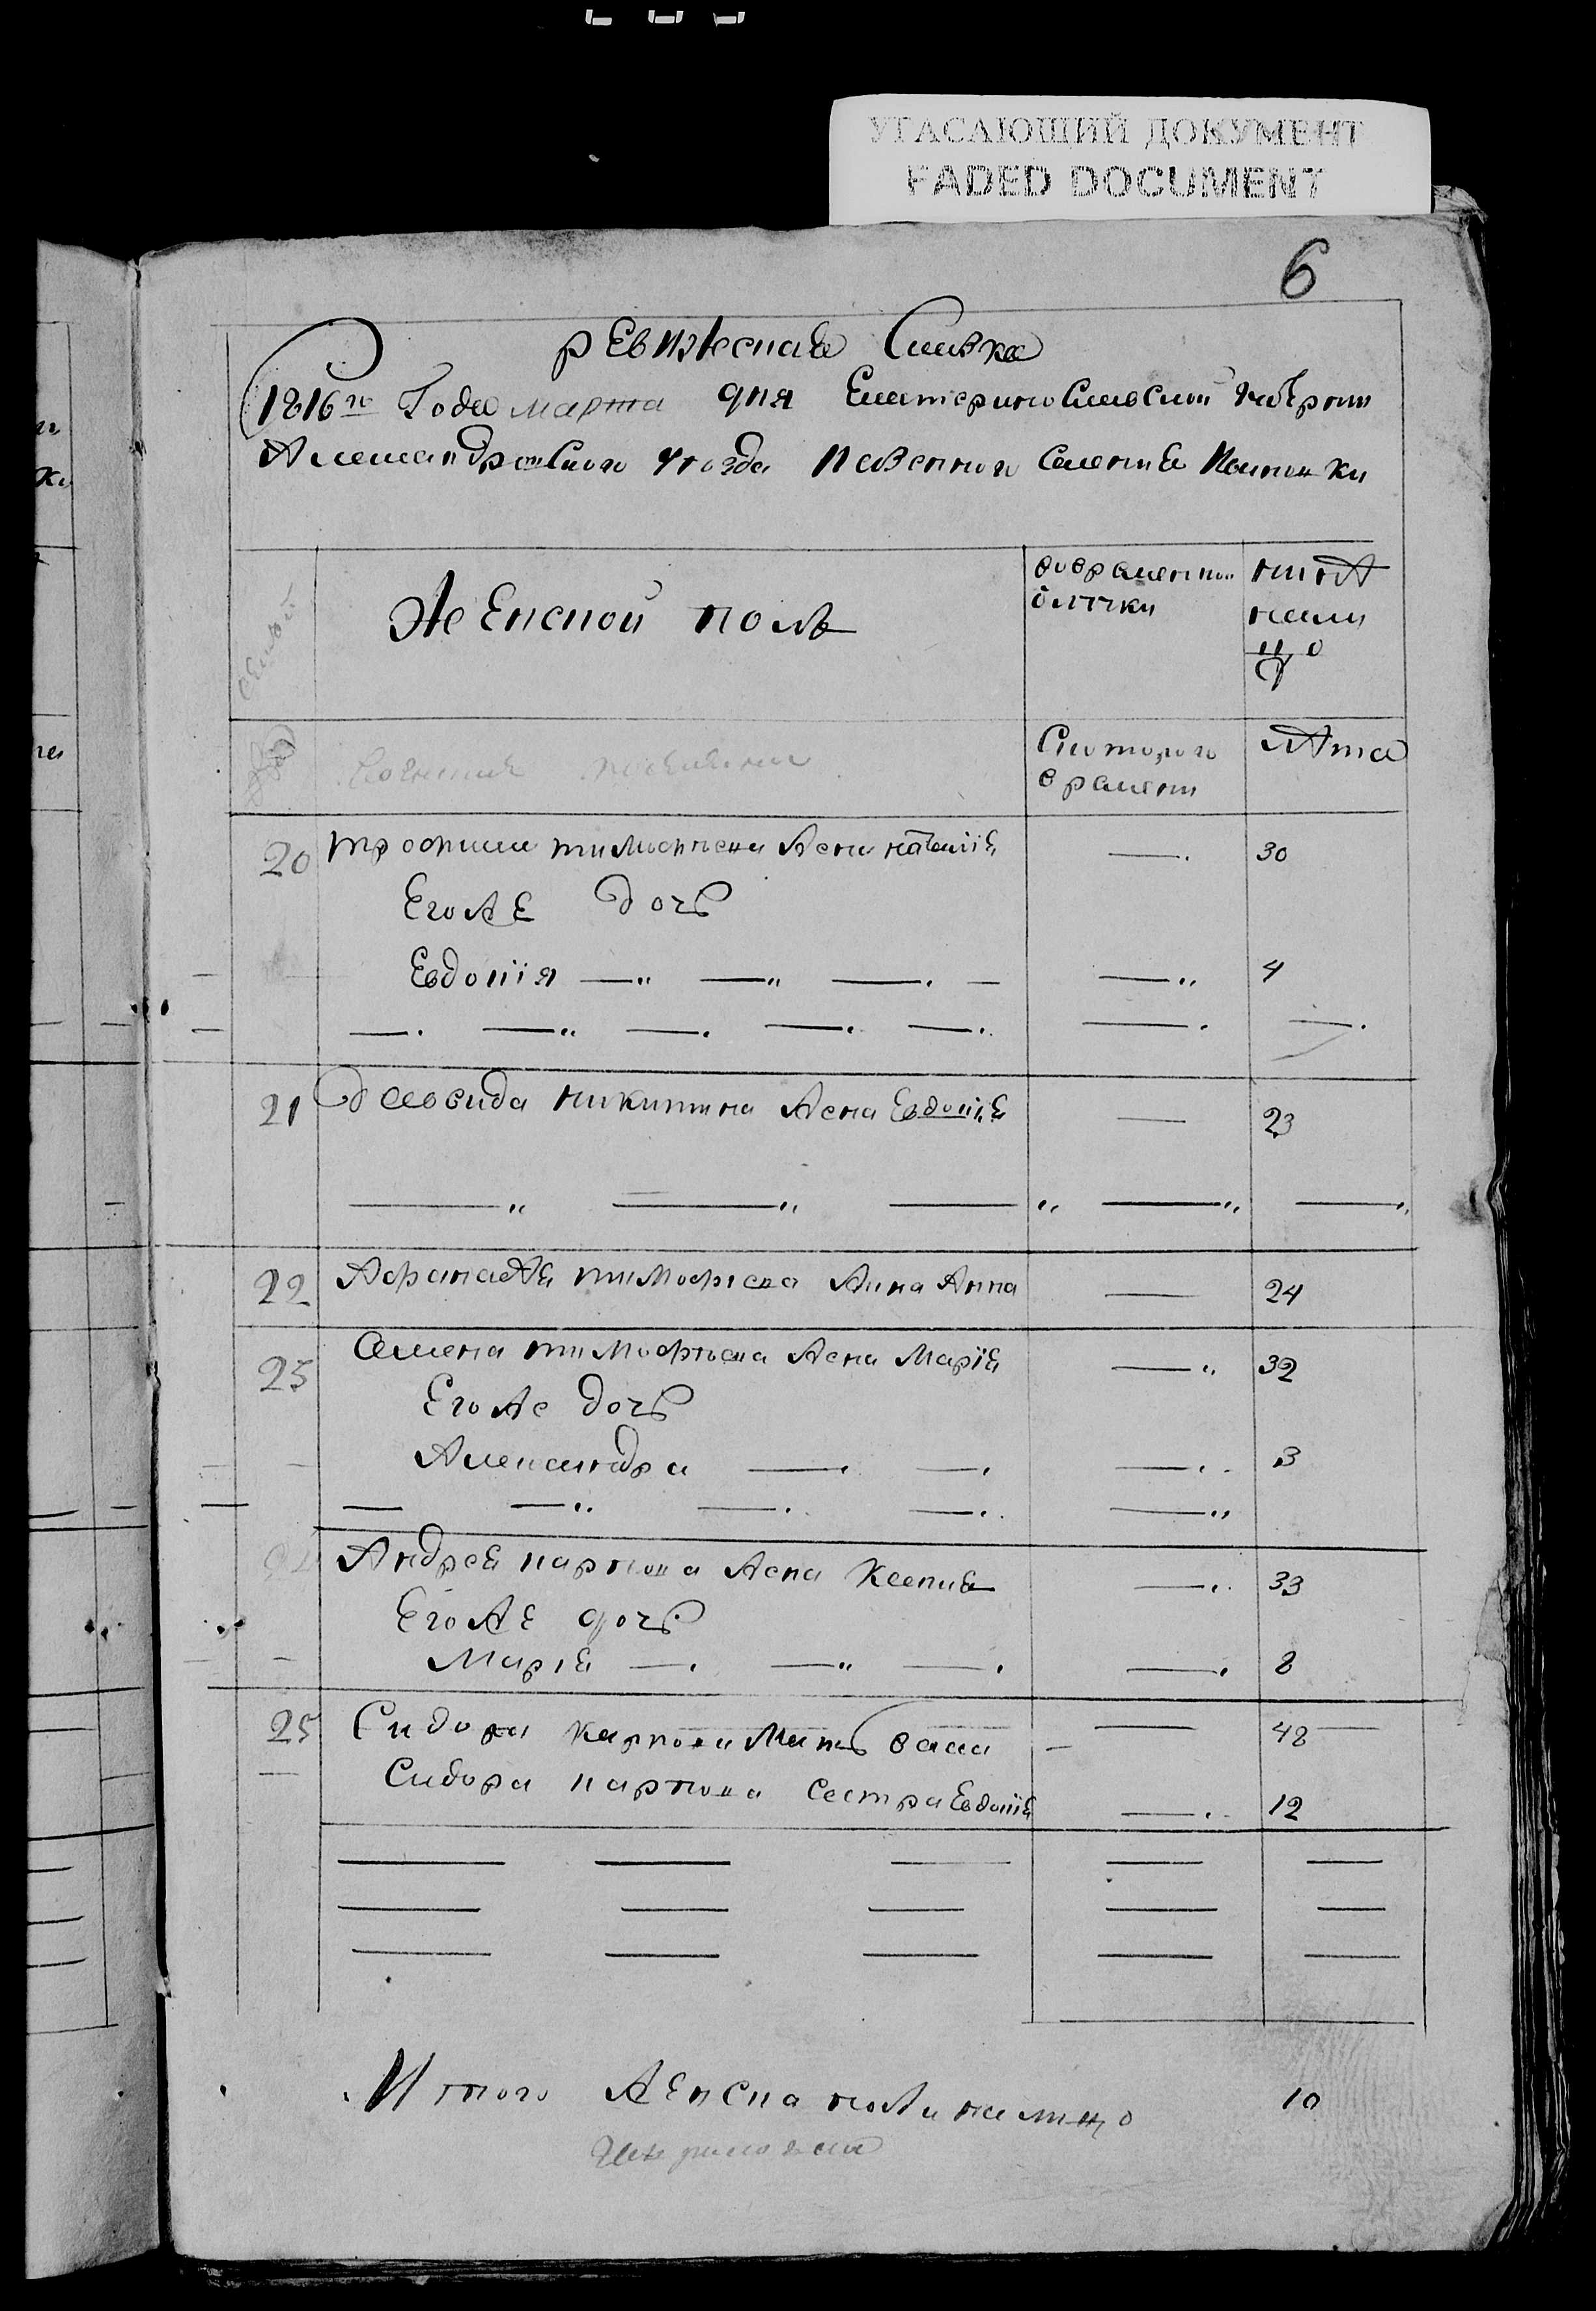 УГАСАЮЩИЙ ДОКУМЕНТ
FADED DOCUMENT
6
ревижеская Сказка
1816го Года марта дня Екатеринославской губернии
Александровского уезда казенного селения
Женской полъ
во временной отлучки
ныне налицо
семьи
Казенния
С которого времени
лета
20 трофима тимофеева жена наталия — 30
Его же дочь
Евдокия — 4
21 давида никитина жена Евдокия — 23
22 Афанасия тимофеева жина Анна — 24
23 Семена тимофеева жена Мария — 32
Его же дочь
Александра — 3
Андрея карпова жена Ксения — 33
Его же дочь
Мария — 8
25 Сидора карпова Мать — 48
Сидора карпова сестра Евдокия — 12
Итого женска пола налицо 10